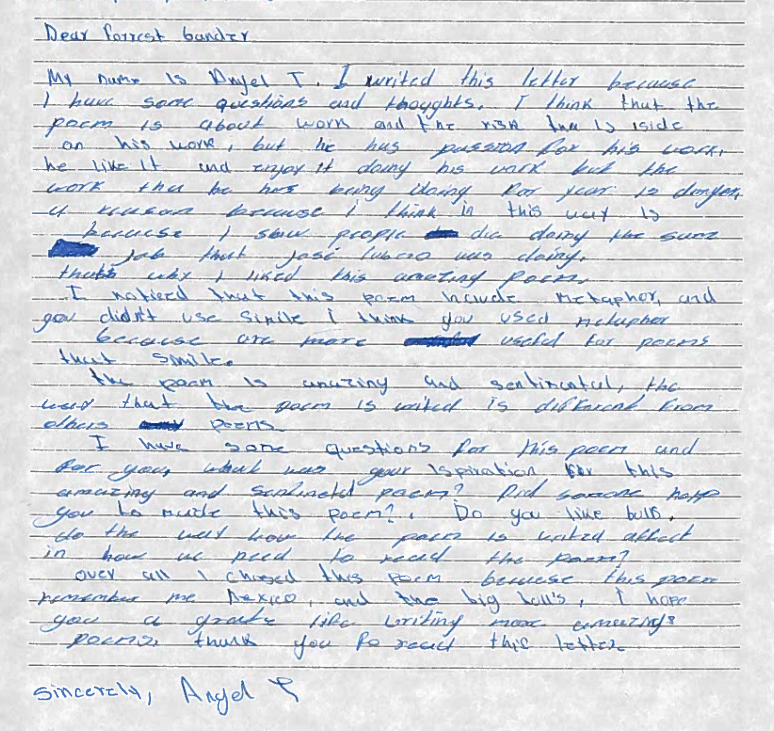 Dear Forrest Gander
My name is Angel T. I writed this letter because
I have some questions and thoughts. I think that the
poem is about work and the risk that is iside
on his work, but he has passion for his work,
he like it and enjoy it doing his work but the
work tha he has being doing for year is danger,
a reason because I think in this way is
because I saw people die doing the same
job that José was doing.
thats why I liked this amazing poem.
I noticed that this poem include metaphor, and
you didn't use simile I think you used metaphor
because are more useful for poems
that simile.
the poem is amazing and sentimental, the
way that the poem is writed is different from
others poems.
I have some questions for this poem and
for you, what was your ispiration for this
amazing and poem? Did someone help
you to made this poem?. Do you like bulls,
do the way how the poem is writed affect
in how we need to read the poem?
over all I chosed this poem because this poem
remember me Mexico, and the big bull's, I hope
you a grate life writing more amazing
poems, thank you fo read this letter.
Sincerely, Angel T